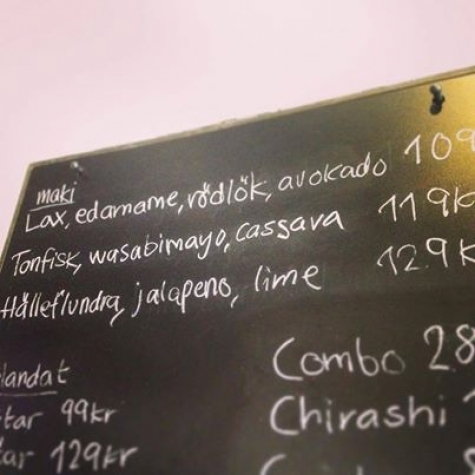 maki
Lax, edamame, rödlök, avokado 109
Tonfisk, wasabimayo, cassava 119k
Hälleflundra, jalapeno, lime 129k
landat
tar 99kr
tar 129kr
Combo 28
Chirashi